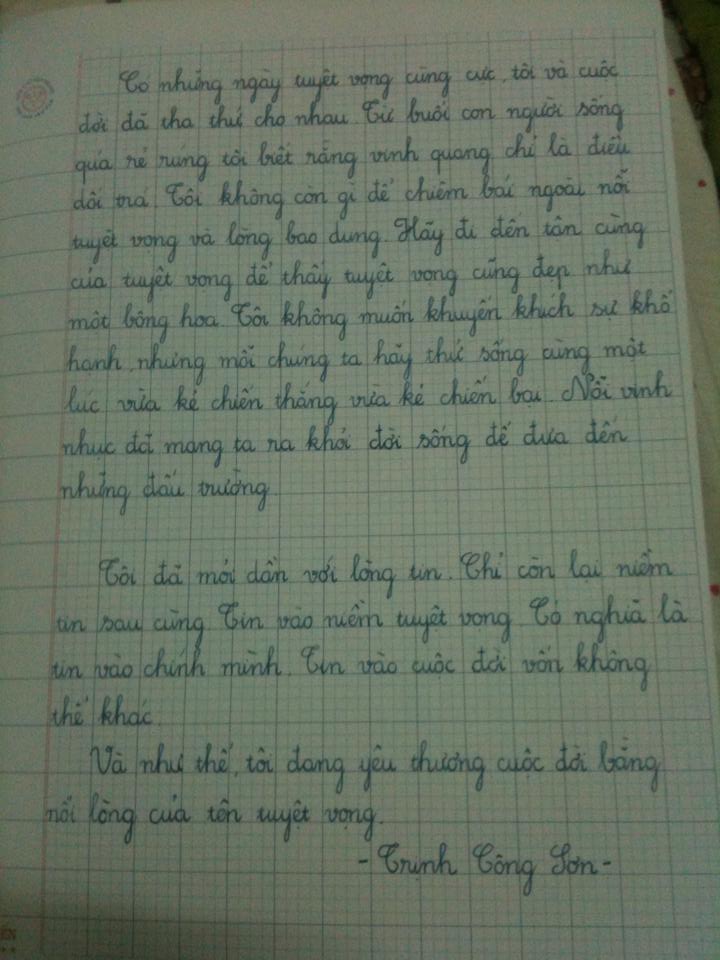 Có những ngày tuyệt vọng cùng cực, tôi và cuộc
đời đã tha thứ cho nhau. Từ buổi con người sống
quá rẻ rúng tôi biết rằng vinh quang chỉ là điều
dối trá. Tôi không còn gì để chiêm bái ngoài nỗi
tuyệt vọng và lòng bao dung. Hãy đi đến tận cùng
của tuyệt vọng để thấy tuyệt vọng cũng đẹp như
một bông hoa. Tôi không muốn khuyến khích sự khổ
hạnh, nhưng mỗi chúng ta hãy thử sống cùng một
lúc vừa kẻ chiến thắng vừa kẻ chiến bại. Nỗi vinh
nhục đã mang ta ra khỏi đời sống để đưa đến
những đấu trường.
Tôi đã mỏi dần với lòng tin. Chỉ còn lại niềm
tin sau cùng. Tin vào niềm tuyệt vọng. Có nghĩa là
tin vào chính mình. Tin vào cuộc đời vốn không
thể khác.
Và như thế, tôi đang yêu thương cuộc đời bằng
nỗi lòng của tên tuyệt vọng.
- Trịnh Công Sơn -